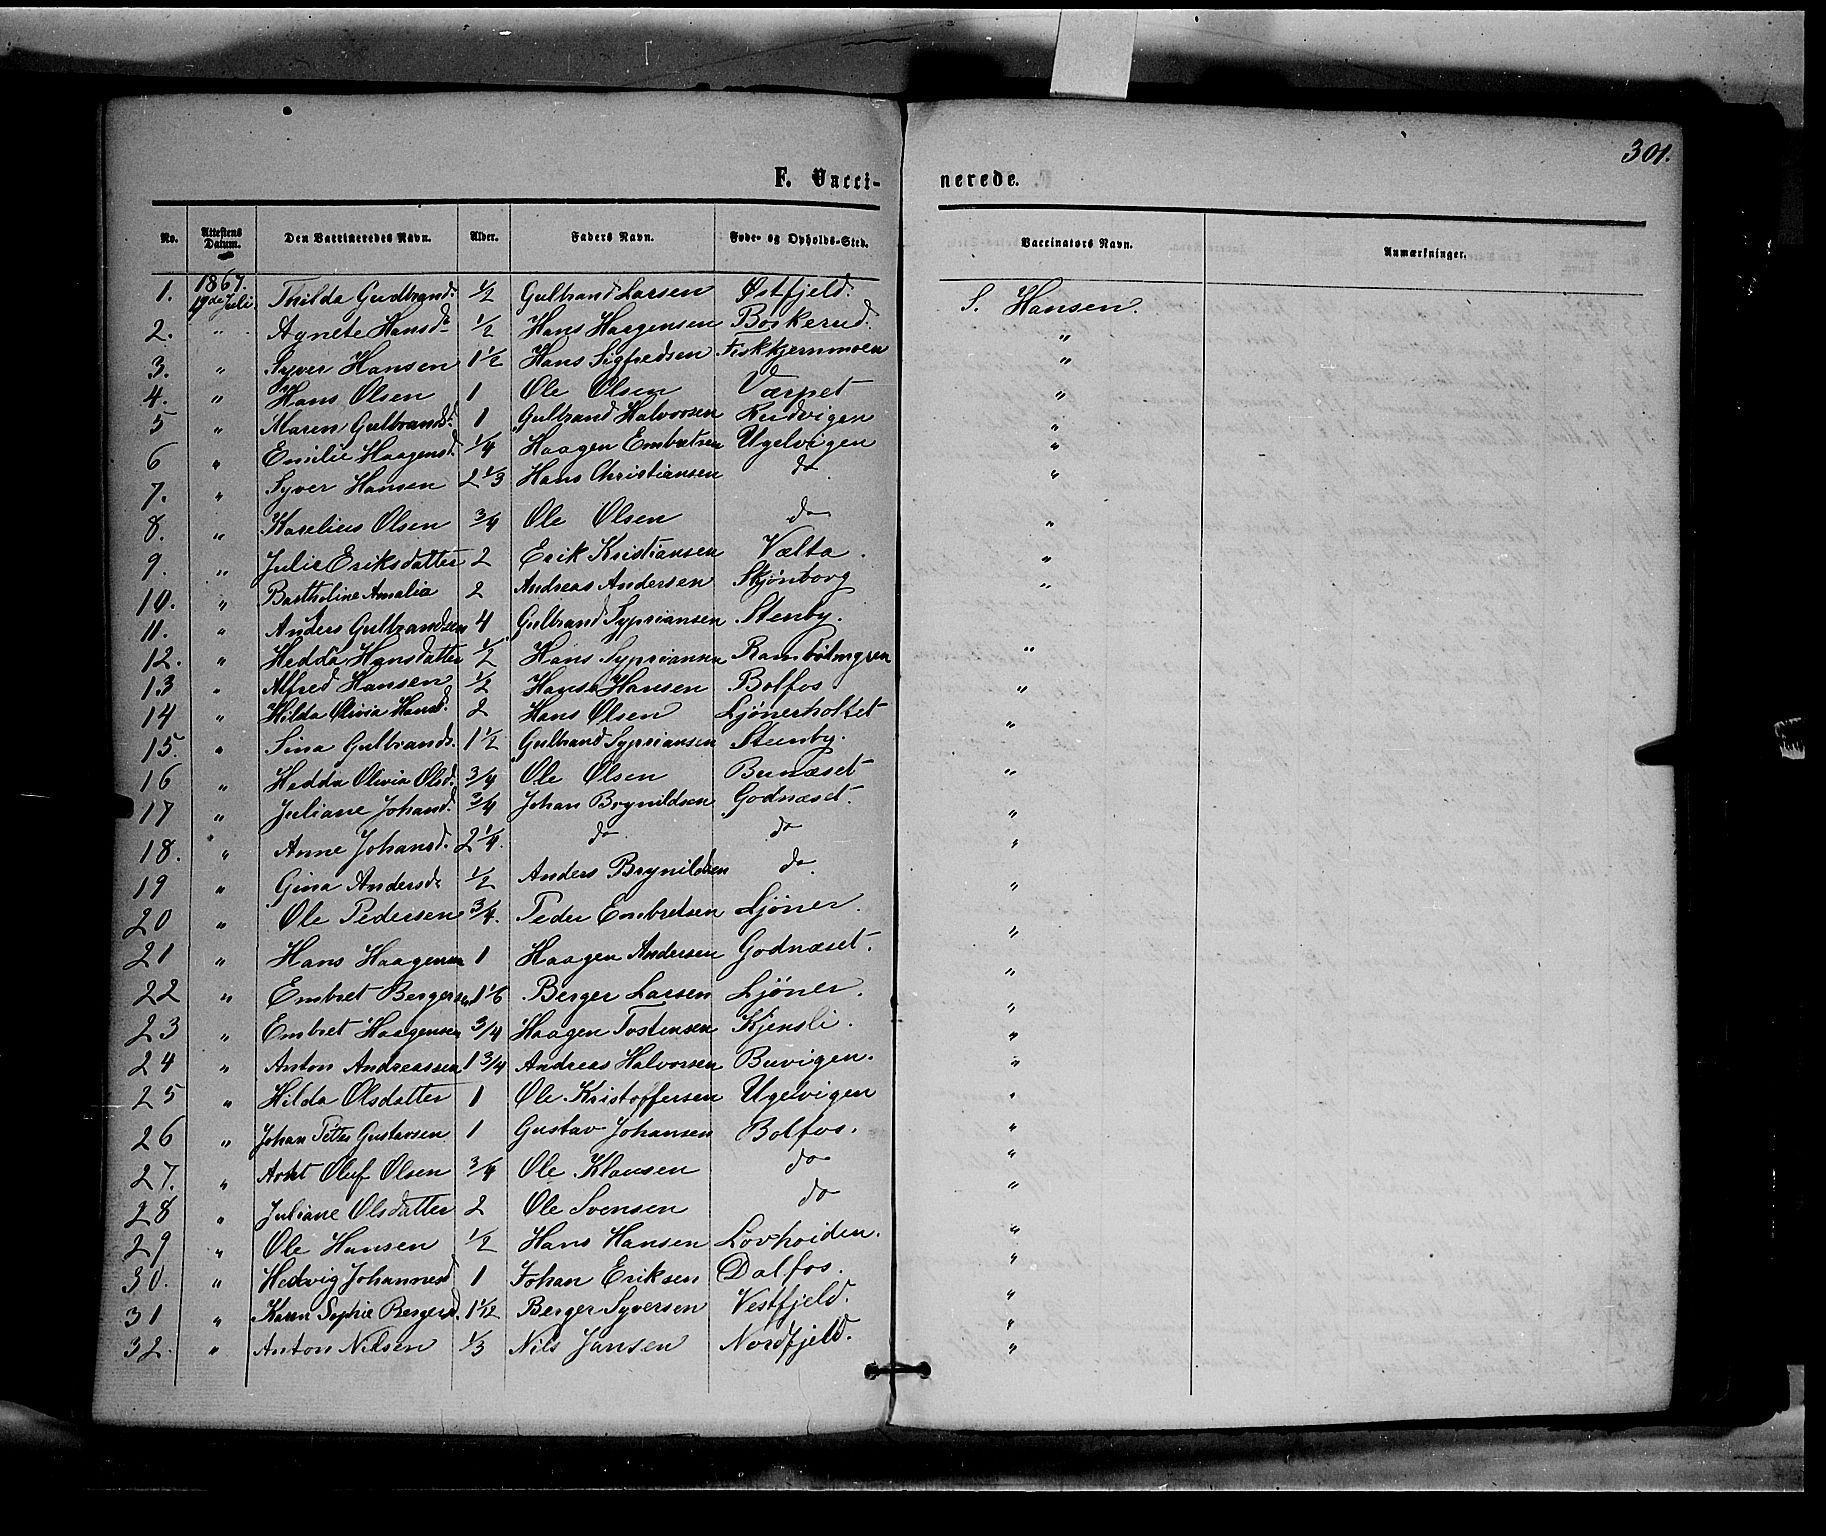 301.
F. Vacci- nerede.
No. Attestens Datum. Den Vaccineredes Navn. Alder. Faders Navn. Føde- og Opholds-Sted. Vaccinators Navn. Anmærkninger.
1. 1867. 19de Juli. Thilda Gudbrandd. 1/2 Gulbrand Larsen Østfjeld. S. Hansen.
2. " Agnete Hansd. 1/2 Hans Haagensen Boskerud. "
3. " Syver Hansen 1 1/2 Hans Sigfredsen Fiskkjernmoen "
4. " Hans Olsen 1 Ole Olsen Værpet "
5 " Maren Gulbrandd. 1 Gulbrand Halvorsen Rudvigen "
6 " Emilie Haagensd. 1/4 Haagen Embretsen Ugelvigen "
7. " Syver Hansen 2 1/3 Hans Christiansen do "
8. " Karelius Olsen 3/4 Ole Olsen do "
9. " Julie Eriksdatter 2 Erik Kristiansen Vælta. "
10. " Bartholine Amalia 2 Andreas Andersen Skjønborg "
11. " Anders Gulbrandsen 4 Gulbrand Sypriansen Stenby.
12. " Hedda Hansdatter 1/2 Hans Sypriansen "
13 " Alfred Hansen 1/2 Hans Hansen Bolfos "
14 " Hilda Olivia Hansd. 2 Hans Olsen Ljønerholtet "
15. " Sina Gulbrandd. 1 1/2 Gulbrand Sypriansen Stenby.
16 " Hedda Olivia Olsd. 3/4 Ole Olsen Bunæset "
17 " Juliane Johansd. 3/4 Johan Brynildsen Godnæset. "
18. " Anne Johansd. 2 1/4. do do "
19 " Gina Andersd. 1/2 Anders Brynildsen do. "
20 " Ole Pedersen 3/4. Peder Embretsen Ljøner. "
21 " Hans Haagensen 1 Haagen Andersen Godnæset. "
22 " Embret Bergersen 1 1/6 Berger Larsen Ljøner. "
23 " Embret Haagensen 3/4 Haagen Tostensen Kjensli. "
24 " Anton Andreassen 1 3/4 Andreas Halvorsen Buvigen. "
25 " Hilda Olsdatter 1 Ole Kristoffersen Ugelvigen "
26 " Johan Petter Gustavsen 1 Gustav Johansen Bolfos. "
27. " Olaf Olsen 3/4 Ole Klausen do "
28 " Juliane Olsdatter 2 Ole Svensen do "
29 " Ole Hansen 1/2 Hans Hansen Løvhøiden. "
30. " Hedvig Johannesd 1 Johan Eriksen Dalfos. "
31 " Karen Sophie Bergersd. 1 1/12 Berger Syversen Vestfjeld. "
32. " Anton Nilsen 1/3 Nils Jansen Nordfjeld. "